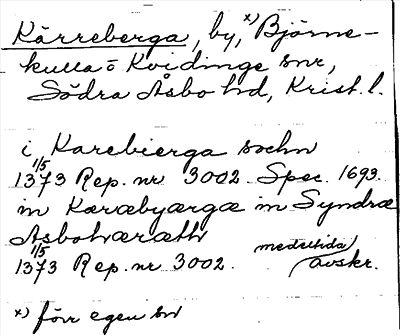 Kärreberga, by, x) Björne-
kulla o Kvidinge snr,
Södra Åsbo hd, Krist. l.
i Karebierga sochn
1/5
1373 Rep. nr 3002. Spec. 1693.
in Karæbyærgæ in Syndræ
Asbohæræth
1/5 medeltida
1373 Rep. nr 3002. avskr.
x) förr egen sn